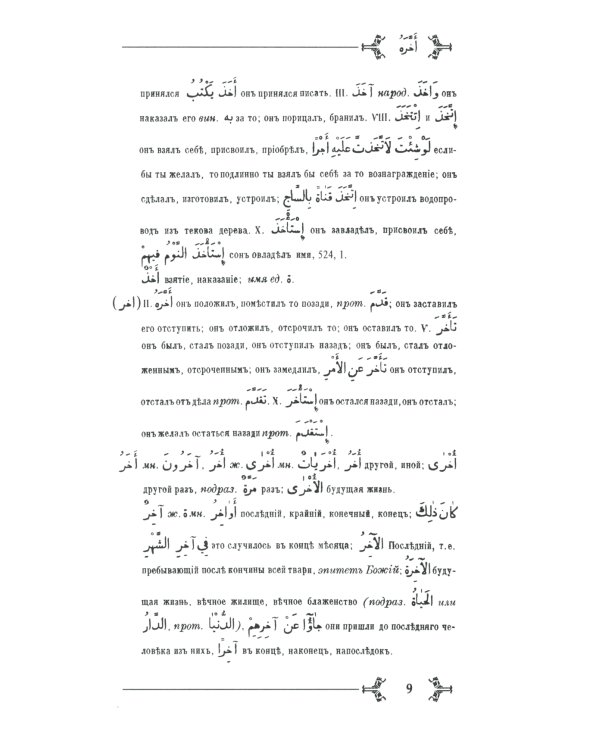 أَخَّرَهُ
принялся أَخَذَ يَكْتُبُ онъ принялся писать. III. آخَذَ народ. وَاخَذَ онъ
наказалъ его вин. بِهِ за то; онъ порицалъ, бранилъ. VIII. إِتَّخَذَ и إِتَّخَذَ
онъ взялъ себѣ, присвоилъ, пріобрѣлъ, لَوْ شِئْتَ لَاتَّخَذْتَ عَلَيْهِ أَجْرًا если-
бы ты желалъ, то подлинно ты взялъ бы себѣ за то вознагражденіе; онъ
сдѣлалъ, изготовилъ, устроилъ; إِتَّخَذَ قَنَاةً بِالسَّاجِ онъ устроилъ водопро-
водъ изъ текова дерева. X. إِسْتَأْخَذَ онъ завладѣлъ, присвоилъ себѣ,
إِسْتَأْخَذَ النَّوْمُ فِيهِمْ сонъ овладѣлъ ими, 524, 1.
أَخْذٌ взятіе, наказаніе; имя ед. ة.
(أخر) II. أَخَّرَهُ онъ положилъ, помѣстилъ то позади, прот. قَدَّمَ; онъ заставилъ
его отступить; онъ отложилъ, отсрочилъ то; онъ оставилъ то. V. تَأَخَّرَ
онъ былъ, сталъ позади, онъ отступилъ назадъ; онъ былъ, сталъ отло-
женнымъ, отсроченнымъ; онъ замедлилъ, تَأَخَّرَ عَنِ الْأَمْرِ онъ отступилъ,
отсталъ отъ дѣла прот. تَقَدَّمَ. X. إِسْتَأْخَرَ онъ остался назади, онъ отсталъ;
онъ желалъ остаться назади прот. إِسْتَقْدَمَ.
آخَرُ мн. آخَرُونَ, أُخَرُ ж. أُخْرَى мн. أُخْرَيَاتٌ, أُخَرُ другой, иной; أُخْرَى
другой разъ, подраз. مَرَّةً разъ; الْأُخْرَى будущая жизнь.
آخِرٌ ж. ة мн. أَوَاخِرُ послѣдній, крайній, конечный, конецъ; كَانَ ذَلِكَ
فِي آخِرِ الشَّهْرِ это случилось въ концѣ мѣсяца; الْآخِرُ Послѣдній, т. е.
пребывающій послѣ кончины всей твари, эпитетъ Божій; الْآخِرَةُ буду-
щая жизнь, вѣчное жилище, вѣчное блаженство (подраз. الْحَيَاةُ или
الدَّارُ, прот. الدُّنْيَا), جَاؤُا عَنْ آخِرِهِمْ они пришли до послѣдняго че-
ловѣка изъ нихъ, آخِرًا въ концѣ, наконецъ, напослѣдокъ.
9